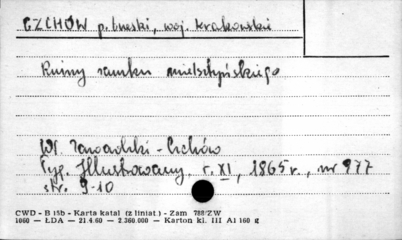 CZCHÓW p. brzeski, woj. krakowskie
Ruiny zamku melsztyńskiego
Wł. Zawadzki - Czchów
Tyg. Illustrowany, r. XI, 1865 r., nr 977
str. 9-10
CWD - B 15b - Karta katal (z liniat.) - Zam 788/ZW
1060 — ŁDA — 21.4.60 — 2.360.000 — Karton kl. III A1 160 g